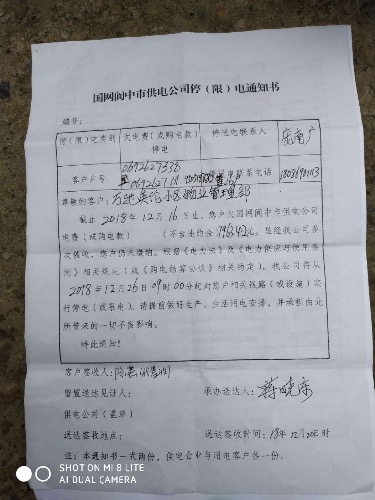 国网阆中市供电公司停（限）电通知书
编号：
停（限）电类别 欠电费（或购电款）停电 停送电联系人 庞南广
客户户号 0692627338 停送电联系电话
尊敬的客户：万地 小区物业管理部
截止 2018 年 12 月 16 日止，您户欠国网阆中市供电公司
电费（或购电款） （不含违约金 元，虽经我公司多
次催收，您户仍未缴纳。根据《电力法》及《电力供应与使用条
例》相关规定（或《购电结算协议》相关约定），我公司将从
2018 年 12 月 26 日 09 时 00 分起对您户相关线路（或设施）实
行停电（或限电），请提前做好生产、生活用电安排，并承担由此
所带来的一切不良影响。
特此通知！
客户签收人：
留置送达见证人： 承办送达人：蒋晓东
供电公司（盖章）
送达签收地点： 送达签收时间：18年 12月 20日 时
注：本通知书一式两份，供电企业与用电客户各一份。
SHOT ON MI 8 LITE
AI DUAL CAMERA